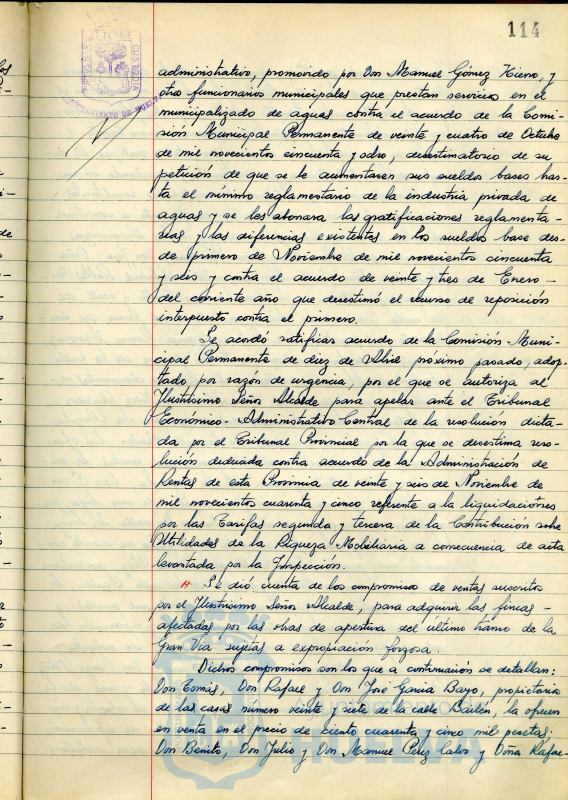 114
administrativo, promovido por Don Manuel Gómez Hierro, y
otros funcionarios municipales que prestan servicios en el
municipalizado de aguas contra el acuerdo de la Comi-
sión Municipal Permanente de veinte y cuatro de Octubre
de mil novecientos cincuenta y ocho, desestimatorio de su
petición de que se le aumentasen sus sueldos bases has-
ta el mínimo reglamentario de la industria privada de
aguas y se les abonara las gratificaciones reglamenta-
rias y las diferencias existentes en los sueldos base des-
de primero de Noviembre de mil novecientos cincuenta
y seis y contra el acuerdo de veinte y tres de Enero -
del corriente año que desestimó el recurso de reposición
interpuesto contra el primero.
Se acordó ratificar acuerdo de la Comisión Muni-
cipal Permanente de diez de Abril próximo pasado, adop-
tado, por razón de urgencia, por el que se autoriza al
Ilustrísimo Señor Alcalde para apelar ante el Tribunal
Económico-Administrativo Central de la resolución dicta-
da por el Tribunal Provincial por la que se desestima reso-
lución deducida contra acuerdo de la Administración de
Rentas de esta Provincia de veinte y seis de Noviembre de
mil novecientos cuarenta y cinco referente a la liquidaciones
por las Tarifas segunda y tercera de la Contribución sobre
Utilidades de la Riqueza Mobiliaria a consecuencia de acta
levantada por la Inspección.
Se dió cuenta de los compromisos de ventas suscritos
por el Ilustrísimo Señor Alcalde, para adquirir las fincas -
afectadas por las obras de apertura del último tramo de la
Gran Vía sujetas a expropiación forzosa.
Dichos compromisos son los que a continuación se detallan:
Don Tomás, Don Rafael y Don José García Bayo, propietarios
de las casas número veinte y siete de la calle Bailén, la ofrecen
en venta en el precio de ciento cuarenta y cinco mil pesetas;
Don Benito, Don Julio y Don Manuel Pérez Calvo y Doña Rafae-